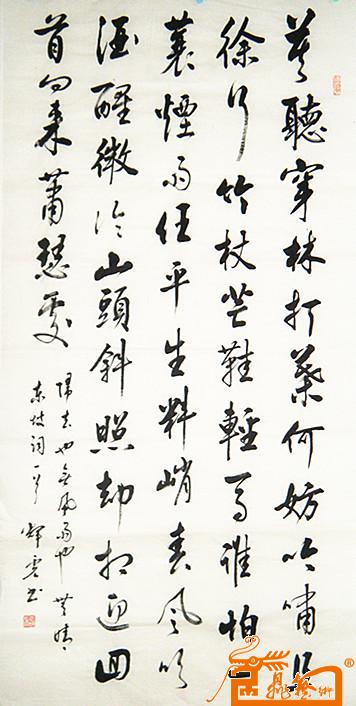 莫聽穿林打葉何妨吟嘯且
徐行竹杖芒鞋輕馬誰怕一
蓑煙雨任平生料峭春風吹
酒醒微冷山頭斜照却相迎回
首向来蕭瑟處
歸去也無風雨也無晴
東坡詞一首